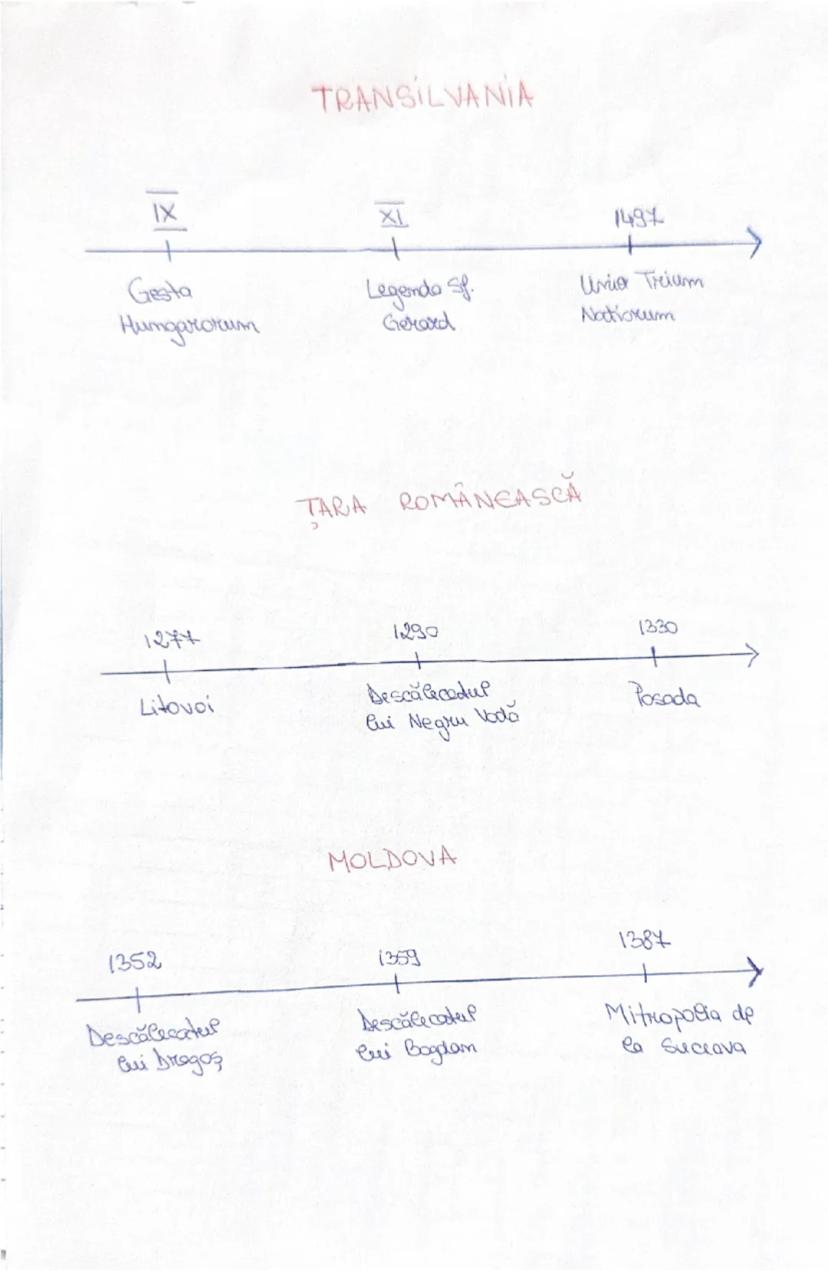 TRANSILVANIA
IX
XI
1497
Gesta
Hungarorum
Legenda Sf.
Gerard
Unio Trium
Natiorum
ȚARA ROMÂNEASCĂ
1277
1290
1330
Litovoi
Descălecatul
lui Negru Vodă
Posada
MOLDOVA
1352
1359
1387
Descălecatul
lui Dragoș
Descălecatul
lui Bogdan
Mitropolia de
la Suceava